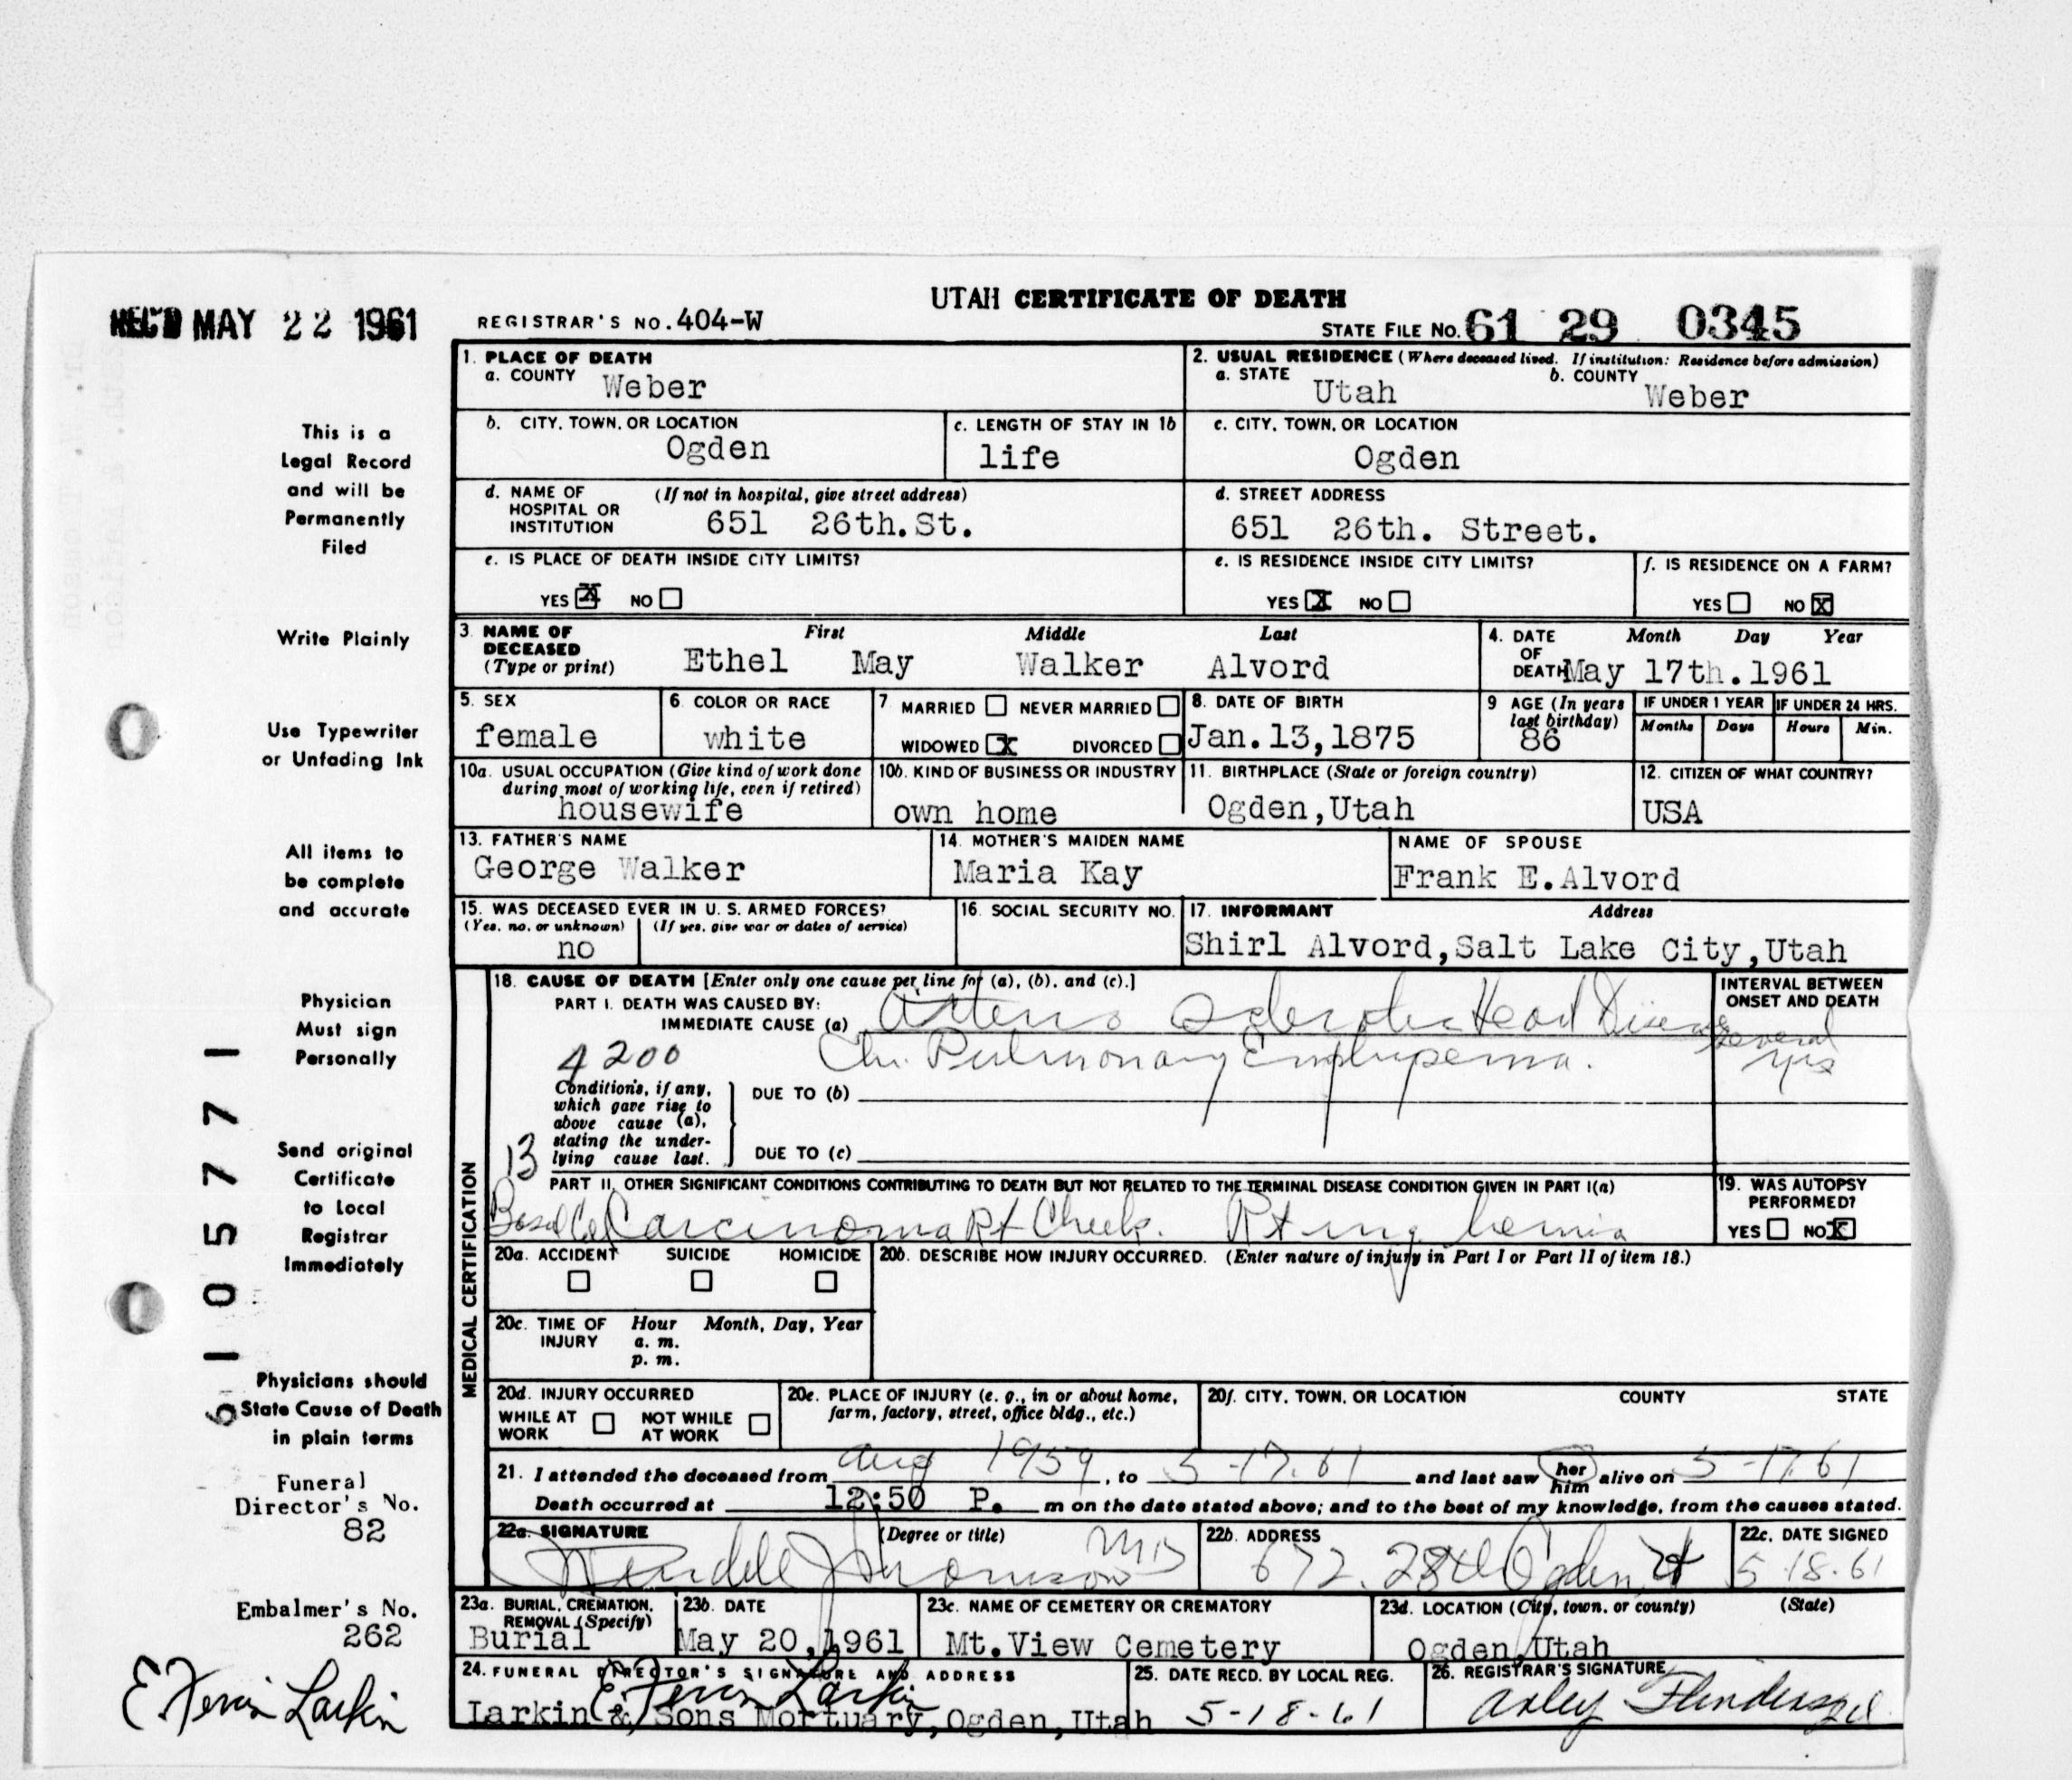 UTAH CERTIFICATE OF DEATH
REC'D MAY 22 1961
REGISTRAR'S NO. 404-W
STATE FILE No. 61 29 0345
This is a
Legal Record
and will be
Permanently
Filed
Write Plainly
Use Typewriter
or Unfading Ink
All items to
be complete
and accurate
Physician
Must sign
Personally
Send original
Certificate
to Local
Registrar
Immediately
Physicians should
State Cause of Death
in plain terms
Funeral
Director's No.
82
Embalmer's No.
262
E Ferrin Larkin
6105771
1. PLACE OF DEATH
a. COUNTY Weber
2. USUAL RESIDENCE (Where deceased lived. If institution: Residence before admission)
a. STATE Utah b. COUNTY Weber
b. CITY, TOWN, OR LOCATION
Ogden
c. LENGTH OF STAY IN 1b
life
c. CITY, TOWN, OR LOCATION
Ogden
d. NAME OF HOSPITAL OR INSTITUTION (If not in hospital, give street address)
651 26th.St.
d. STREET ADDRESS
651 26th. Street.
e. IS PLACE OF DEATH INSIDE CITY LIMITS?
YES X NO
e. IS RESIDENCE INSIDE CITY LIMITS?
YES X NO
f. IS RESIDENCE ON A FARM?
YES NO X
3. NAME OF DECEASED (Type or print) First Middle Last
Ethel May Walker Alvord
4. DATE OF DEATH Month Day Year
May 17th.1961
5. SEX
female
6. COLOR OR RACE
white
7. MARRIED NEVER MARRIED
WIDOWED X DIVORCED
8. DATE OF BIRTH
Jan.13,1875
9 AGE (In years last birthday)
86
IF UNDER 1 YEAR
Months Days
IF UNDER 24 HRS.
Hours Min.
10a. USUAL OCCUPATION (Give kind of work done during most of working life, even if retired)
housewife
10b. KIND OF BUSINESS OR INDUSTRY
own home
11. BIRTHPLACE (State or foreign country)
Ogden,Utah
12. CITIZEN OF WHAT COUNTRY?
USA
13. FATHER'S NAME
George Walker
14. MOTHER'S MAIDEN NAME
Maria Kay
NAME OF SPOUSE
Frank E.Alvord
15. WAS DECEASED EVER IN U. S. ARMED FORCES?
(Yes, no, or unknown) (If yes, give war or dates of service)
no
16. SOCIAL SECURITY NO.
17. INFORMANT Address
Shirl Alvord,Salt Lake City,Utah
MEDICAL CERTIFICATION
18. CAUSE OF DEATH [Enter only one cause per line for (a), (b), and (c).]
PART I. DEATH WAS CAUSED BY:
IMMEDIATE CAUSE (a) Arterio Sclerotic Heart Disease
Chr. Pulmonary Emphysema.
4200
INTERVAL BETWEEN ONSET AND DEATH
Several yrs
Conditions, if any, which gave rise to above cause (a), stating the underlying cause last.
DUE TO (b)
DUE TO (c)
13
PART II. OTHER SIGNIFICANT CONDITIONS CONTRIBUTING TO DEATH BUT NOT RELATED TO THE TERMINAL DISEASE CONDITION GIVEN IN PART I(a)
Basal Cell Carcinoma Rt Cheek. Rt ing hernia
19. WAS AUTOPSY PERFORMED?
YES NO X
20a. ACCIDENT SUICIDE HOMICIDE
20b. DESCRIBE HOW INJURY OCCURRED. (Enter nature of injury in Part I or Part II of item 18.)
20c. TIME OF INJURY Hour Month, Day, Year
a. m.
p. m.
20d. INJURY OCCURRED
WHILE AT WORK NOT WHILE AT WORK
20e. PLACE OF INJURY (e. g., in or about home, farm, factory, street, office bldg., etc.)
20f. CITY, TOWN, OR LOCATION COUNTY STATE
21. I attended the deceased from Aug 1959, to 5-17.61 and last saw her him alive on 5-17.61
Death occurred at 12:50 P. m on the date stated above; and to the best of my knowledge, from the causes stated.
22a. SIGNATURE (Degree or title)
Wendell J Thomson MD
22b. ADDRESS
672. 28th Ogden, Ut
22c. DATE SIGNED
5-18-61
23a. BURIAL, CREMATION, REMOVAL (Specify)
Burial
23b. DATE
May 20,1961
23c. NAME OF CEMETERY OR CREMATORY
Mt.View Cemetery
23d. LOCATION (City, town, or county) (State)
Ogden,Utah
24. FUNERAL DIRECTOR'S SIGNATURE AND ADDRESS
E Ferrin Larkin
Larkin & Sons Mortuary,Ogden,Utah
25. DATE RECD. BY LOCAL REG.
5-18-61
26. REGISTRAR'S SIGNATURE
Arley Flinders